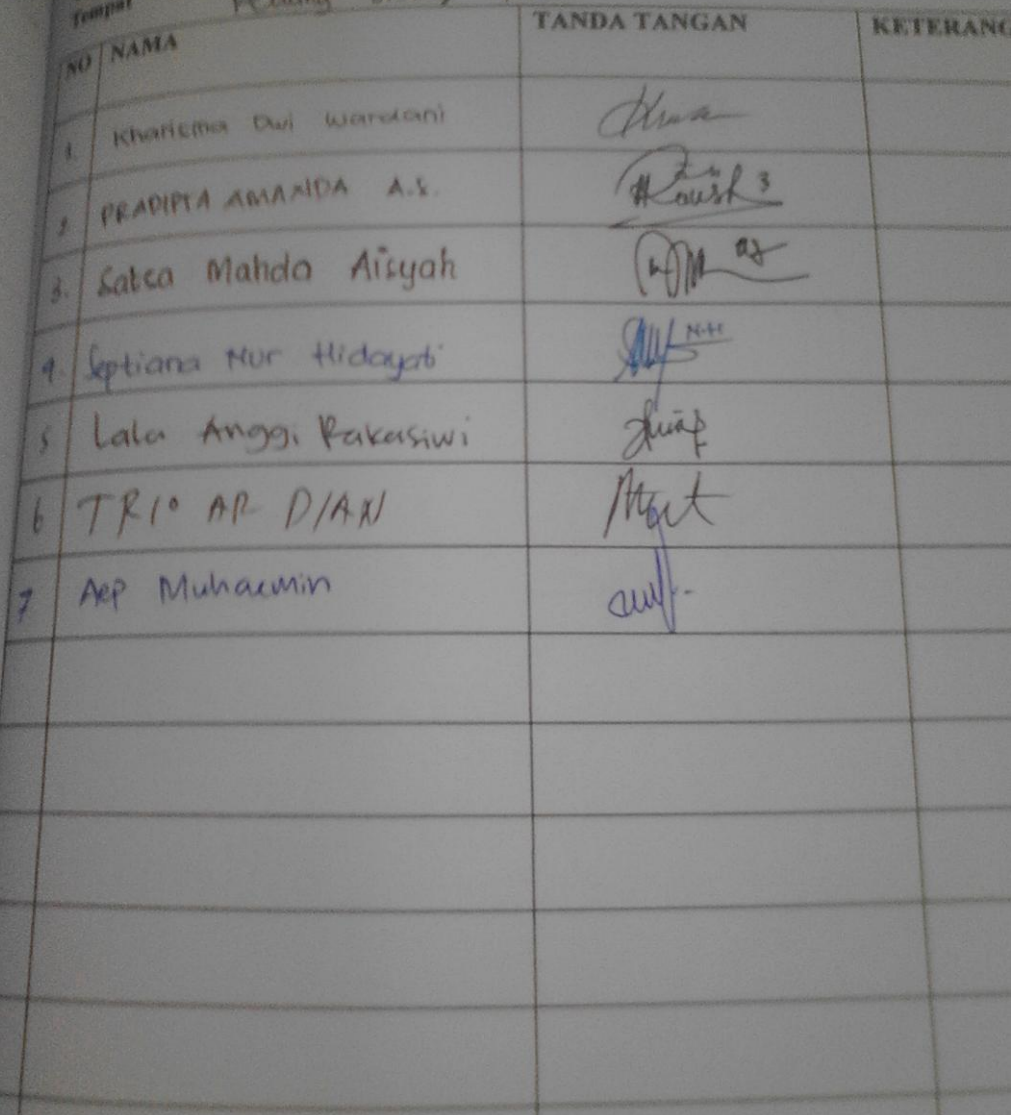 Tempat
NO NAMA TANDA TANGAN KETERANG
1. Kharisma Dwi Wardani
2. PRADIPTA AMANDA A.S.
3. Salsa Mahda Aisyah
4. Septiana Nur Hidayati N-H
5 Lala Anggi Rakasiwi
6 TRIO AR DIAN
7 Aep Muhaemin